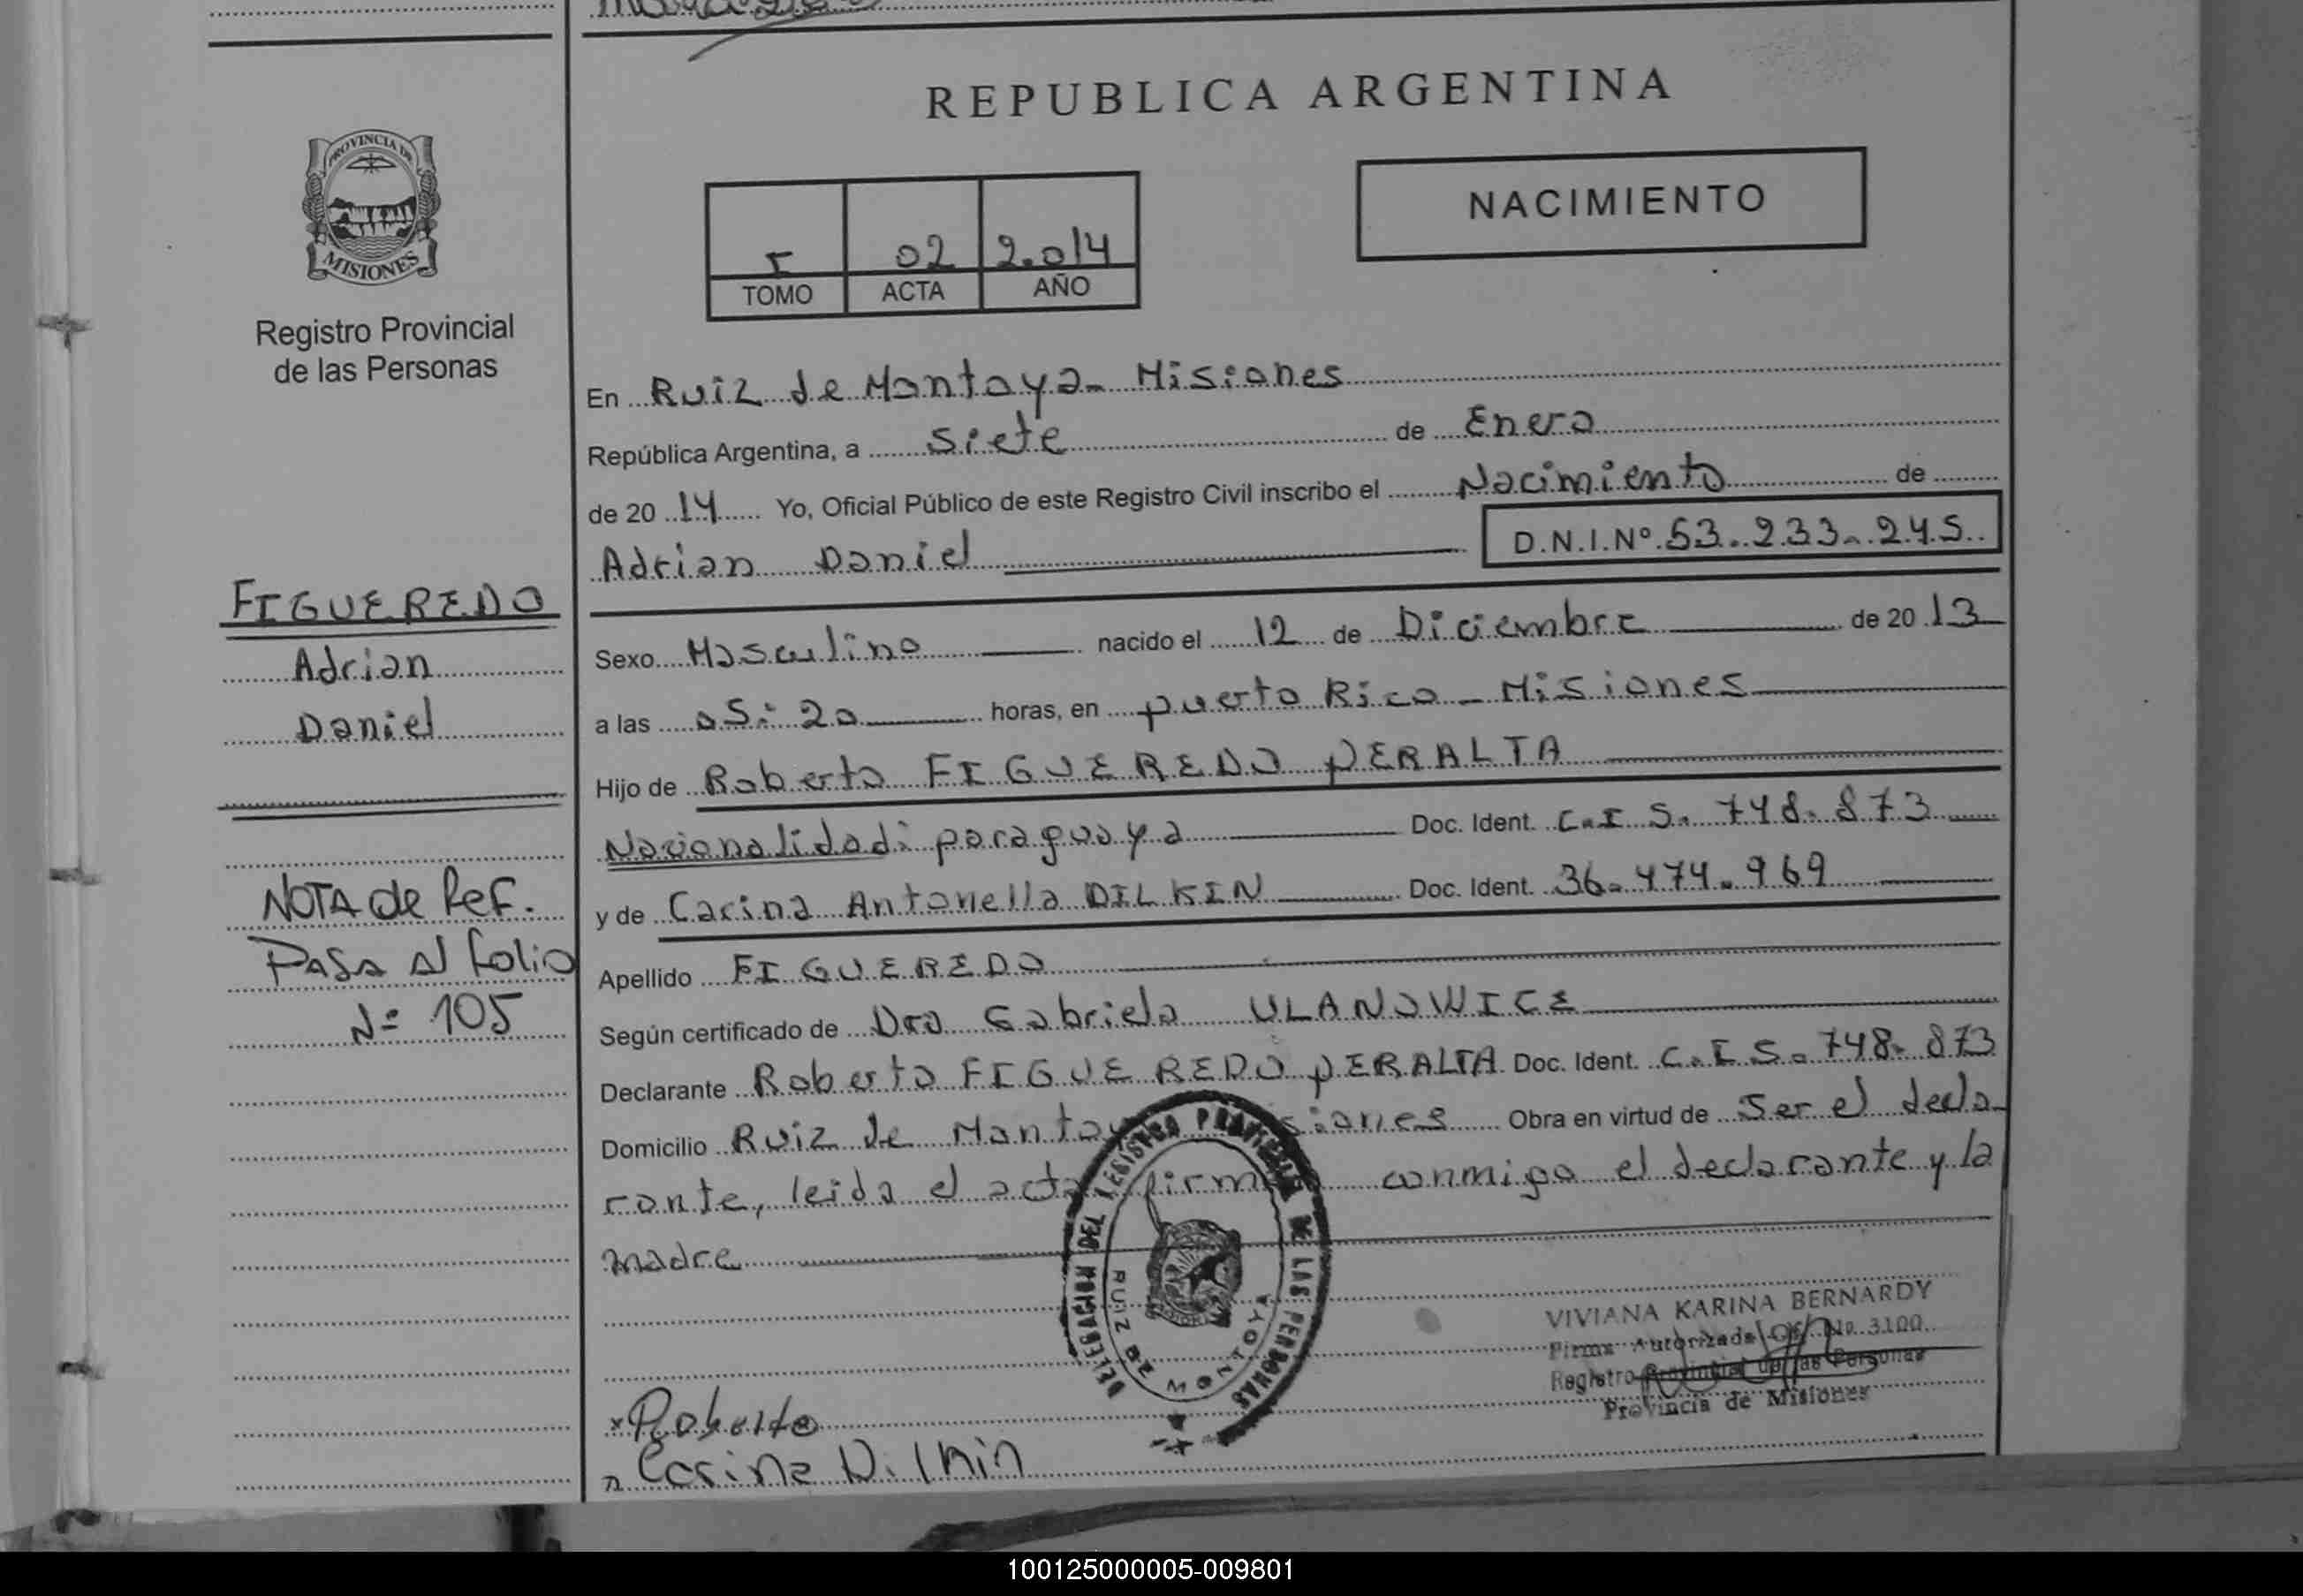 REPUBLICA ARGENTINA
PROVINCIA DE
MISIONES
Registro Provincial
de las Personas
NACIMIENTO
I 02 2.014
TOMO ACTA AÑO
En Ruiz de Montoya - Misiones
República Argentina, a Siete de Enero
de 20 14 Yo, Oficial Público de este Registro Civil inscribo el Nacimiento de
Adrian Daniel D.N.I.Nº 53.233.245
FIGUEREDO
Adrian
Daniel
Sexo Masculino nacido el 12 de Diciembre de 20 13
a las 05:20 horas, en puerto Rico - Misiones
Hijo de Roberto FIGUEREDO PERALTA
Nacionalidad: paraguaya Doc. Ident. C.I S. 748.873
y de Carina Antonella DILKIN Doc. Ident. 36.474.969
NOTA de Ref.
PASA Al folio
Nº 105
Apellido FIGUEREDO
Según certificado de Dra Gabriela ULANOWICZ
Declarante Roberto FIGUEREDO PERALTA Doc. Ident. C.I S. 748.873
Domicilio Ruiz de Montoya Misiones Obra en virtud de Ser el decla-
rante, leida el acta firman conmigo el declarante y la
madre
DELEGACION DEL REGISTRO PROVINCIAL DE LAS PERSONAS
RUIZ DE MONTOYA
VIVIANA KARINA BERNARDY
Firma Autorizada Of. Nº 3100
Registro Provincial de las Personas
Provincia de Misiones
x Roberto
Carina Dilkin
100125000005-009801